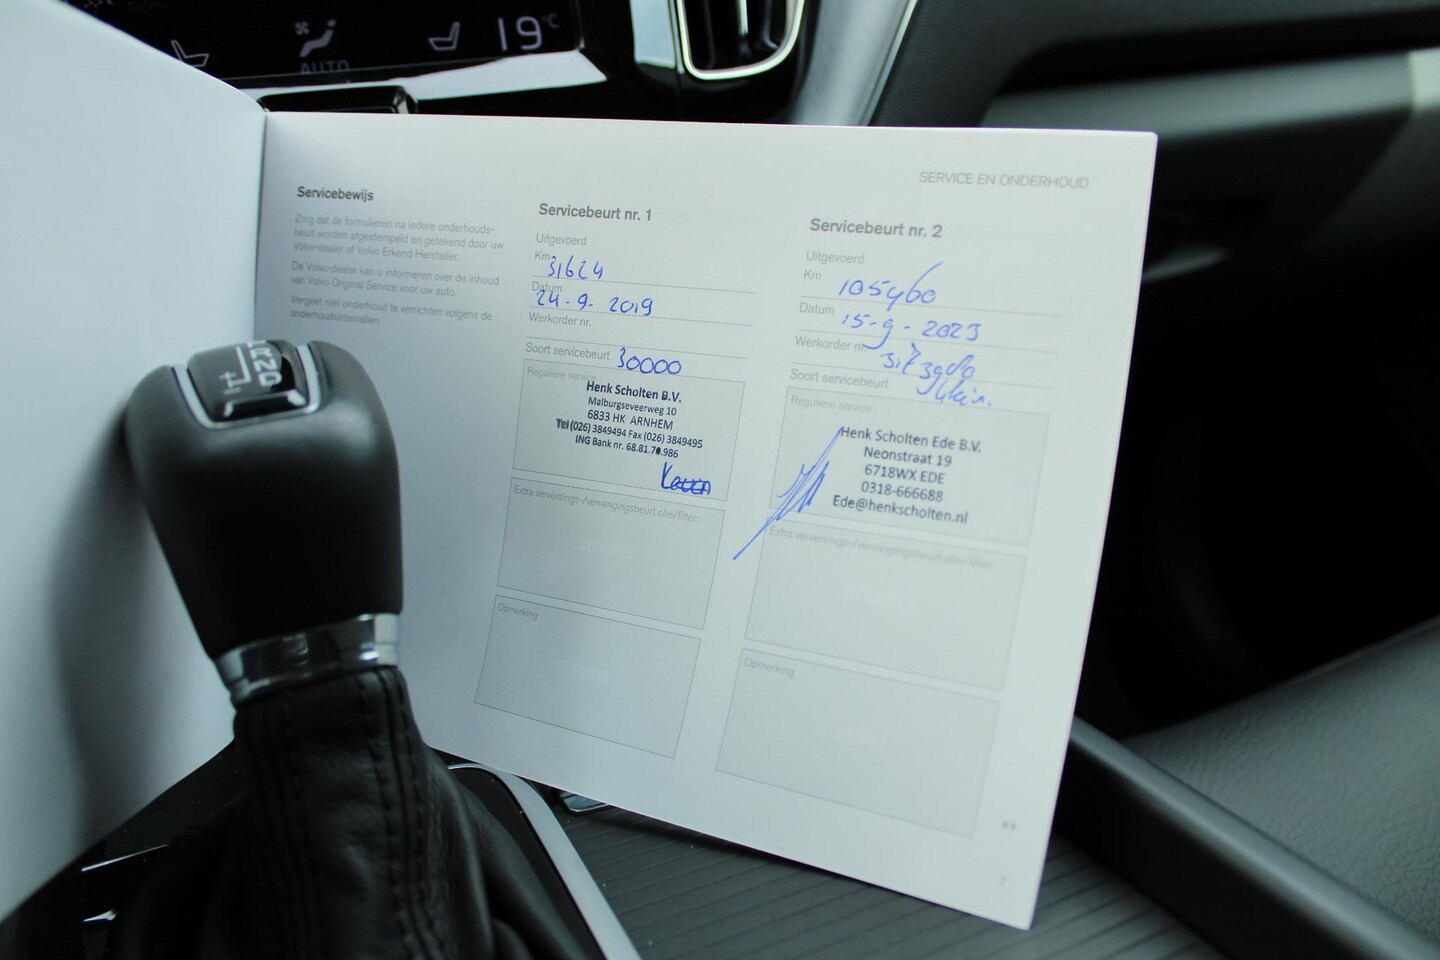 AUTO
19°C
SERVICE EN ONDERHOUD
Servicebewijs
Zorg dat de formulieren na iedere onderhouds-
beurt worden afgestempeld en getekend door uw
Volvo-dealer of Volvo Erkend Hersteller.
De Volvo-dealer kan u informeren over de inhoud
van Volvo Original Service voor uw auto.
Vergeet niet onderhoud te verrichten volgens de
onderhoudsintervallen.
Servicebeurt nr. 1
Uitgevoerd
Km 31624
Datum 24-9-2019
Werkorder nr.
Soort servicebeurt 30000
Reguliere service
Henk Scholten B.V.
Malburgseveerweg 10
6833 HK ARNHEM
Tel (026) 3849494 Fax (026) 3849495
ING Bank nr. 68.81.70.986
Extra verversings-/vervangingsbeurt olie/filter:
Opmerking
Servicebeurt nr. 2
Uitgevoerd
Km 105460
Datum 15-9-2023
Werkorder nr.
Soort servicebeurt
Reguliere service
Henk Scholten Ede B.V.
Neonstraat 19
6718WX EDE
0318-666688
Ede@henkscholten.nl
Extra verversings-/vervangingsbeurt olie/filter:
Opmerking
7